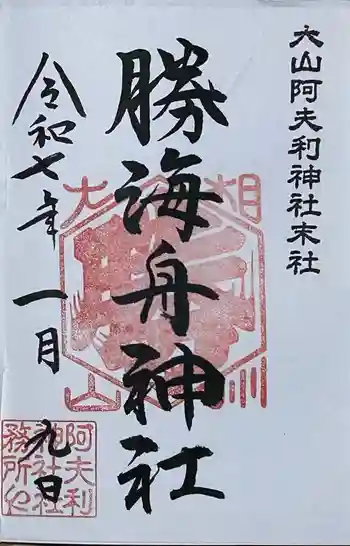 大山阿夫利神社末社
勝海舟神社
令和七年 一月 九日
相
大
川
山
阿夫利
神社社
務所之